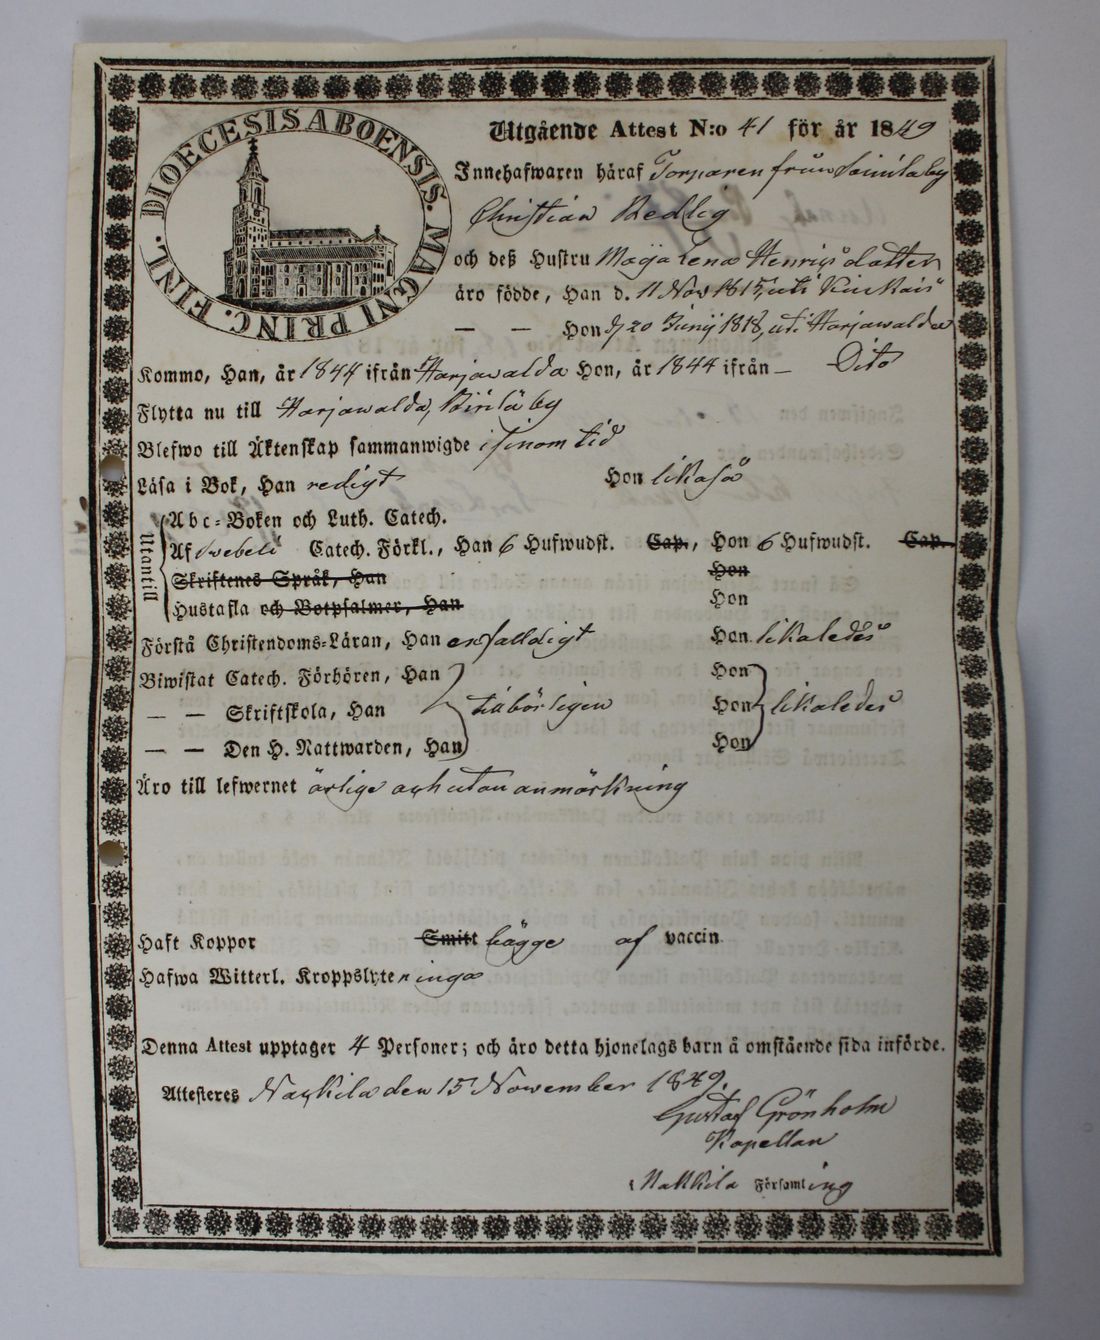 DIOECESIS ABOENSIS. MAGNI PRINC. FINL.
Utgående Attest N:o 41 för år 1849
Innehafwaren häraf Torparen från Simila by
Christian Redlig
och deß Hustru Maja Lena Henrigsdotter
äro födde, Han d. 11 Nov 1815, uti
— — Hon d 20 Junij 1818, uti Harjawalda
Kommo, Han, år 1844 ifrån Harjawalda Hon, år 1844 ifrån — Dito
Flytta nu till Harjawalda, by
Blefwo till Äktenskap sammanwigde i sinom tid
Läsa i Bok, Han redigt Hon likaså
Utantill
Abc-Boken och Luth. Catech.
Af Svebeli Catech. Förkl., Han 6 Hufwudst. Cap., Hon 6 Hufwudst. Cap.
Skriftenes Språk, Han Hon
Hustafla och Botpsalmer, Han Hon
Förstå Christendoms-Läran, Han enfalldigt Hon likaledes
Biwistat Catech. Förhören, Han Hon
— — Skriftskola, Han tilbörligen Hon likaledes
— — Den H. Nattwarden, Han Hon
Äro till lefwernet ärlige och utan anmärkning
Haft Koppor Smitt bägge af vaccin
Hafwa Witterl. Kroppslyten inga
Denna Attest upptager 4 Personer; och äro detta hjonelags barn å omstående sida införde.
Attesteres Nackila den 15 November 1849.
Gustaf Grönholm
Kapellan
i Nakkila Församling